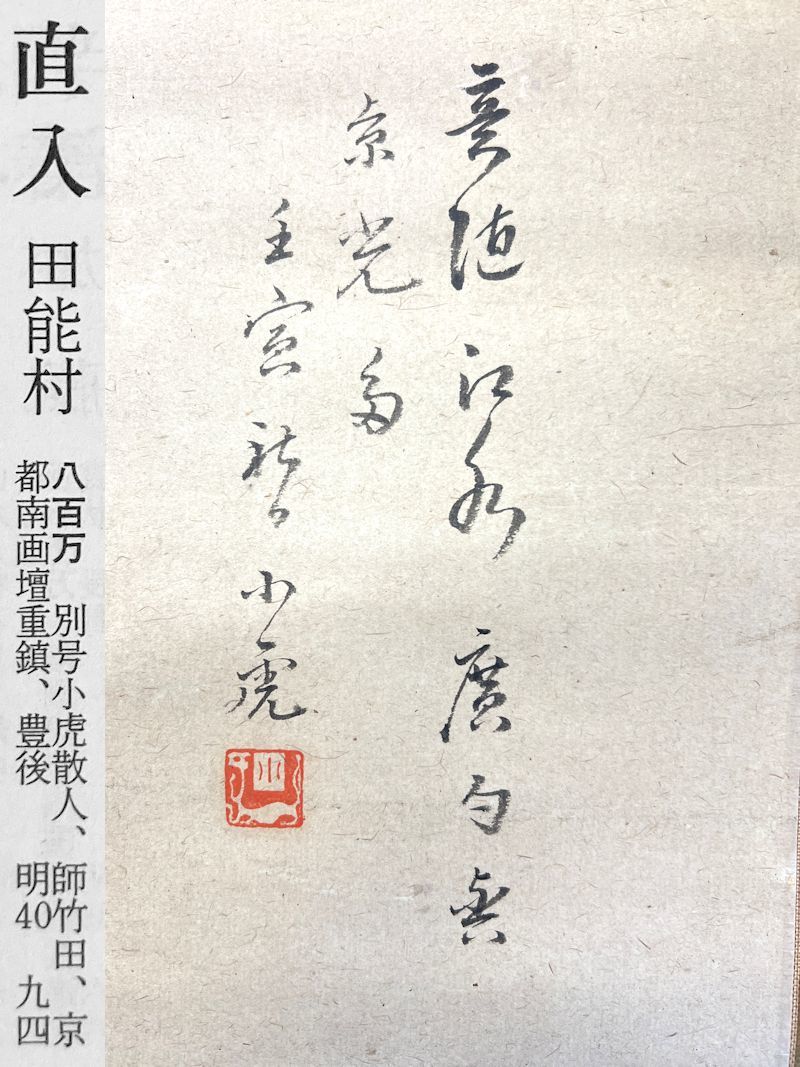 随江水廣句與
京光多
壬寅 小虎
直入 田能村
八百万 別号小虎散人、師竹田、京
都南画壇重鎮、豊後 明40 九四